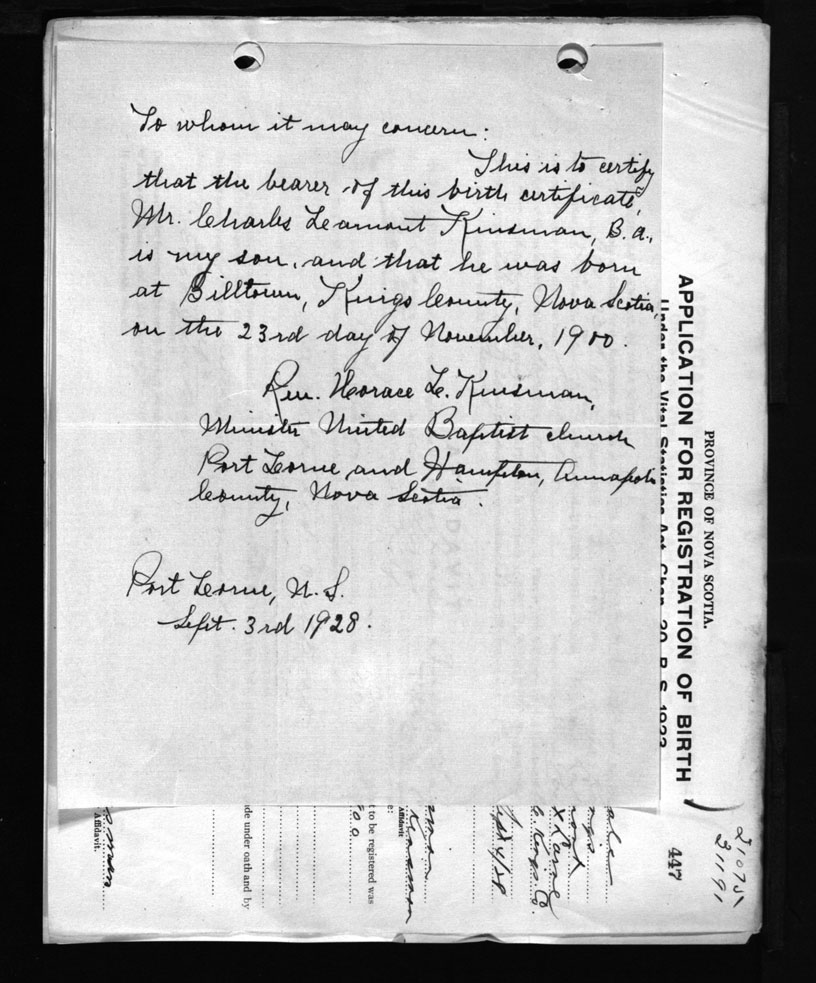 To whom it may concern:
This is to certify
that the bearer of this birth certificate,
Mr. Charles Leamont Kinsman, B.A.,
is my son, and that he was born
at Billtown, Kings County, Nova Scotia,
on the 23rd day of November, 1900.
Rev. Horace L. Kinsman,
Minister United Baptist church
Port Lorne and Hampton, Annapolis
County, Nova Scotia.
Port Lorne, N.S.
Sept. 3rd 1928.
PROVINCE OF NOVA SCOTIA.
APPLICATION FOR REGISTRATION OF BIRTH
Under the Vital Statistics Act, Chap. 20, R. S. 1923
447
Kings Co.
Sept 4/28
Affidavit
t to be registered was
de under oath and by
Affidavit.